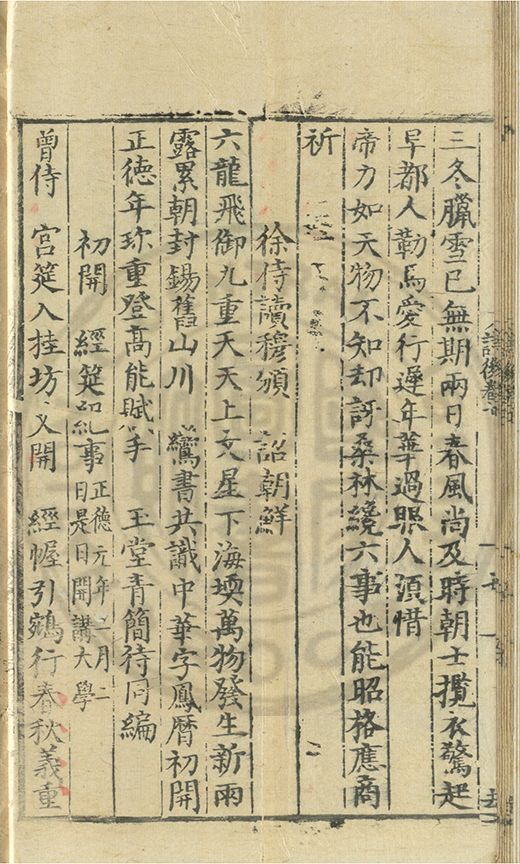 三冬臘雪已無期兩日春風尚及時朝士攬衣驚起
早都人勒馬愛行遲年華過眼人須惜
帝力如天物不知却訝桑林繞六事也能昭格應商
祈
徐侍讀穆頒 詔朝鮮
六龍飛御九重天天上文星下海堧萬物發生新雨
露累朝封錫舊山川 鸞書共識中華字鳳曆初開
正德年珎重登高能賦手 玉堂青簡待同編
初開 經筵紀事正德元年二月二日是日開講大學
曾侍 宮筵入桂坊又開 經幄引鵷行春秋義重